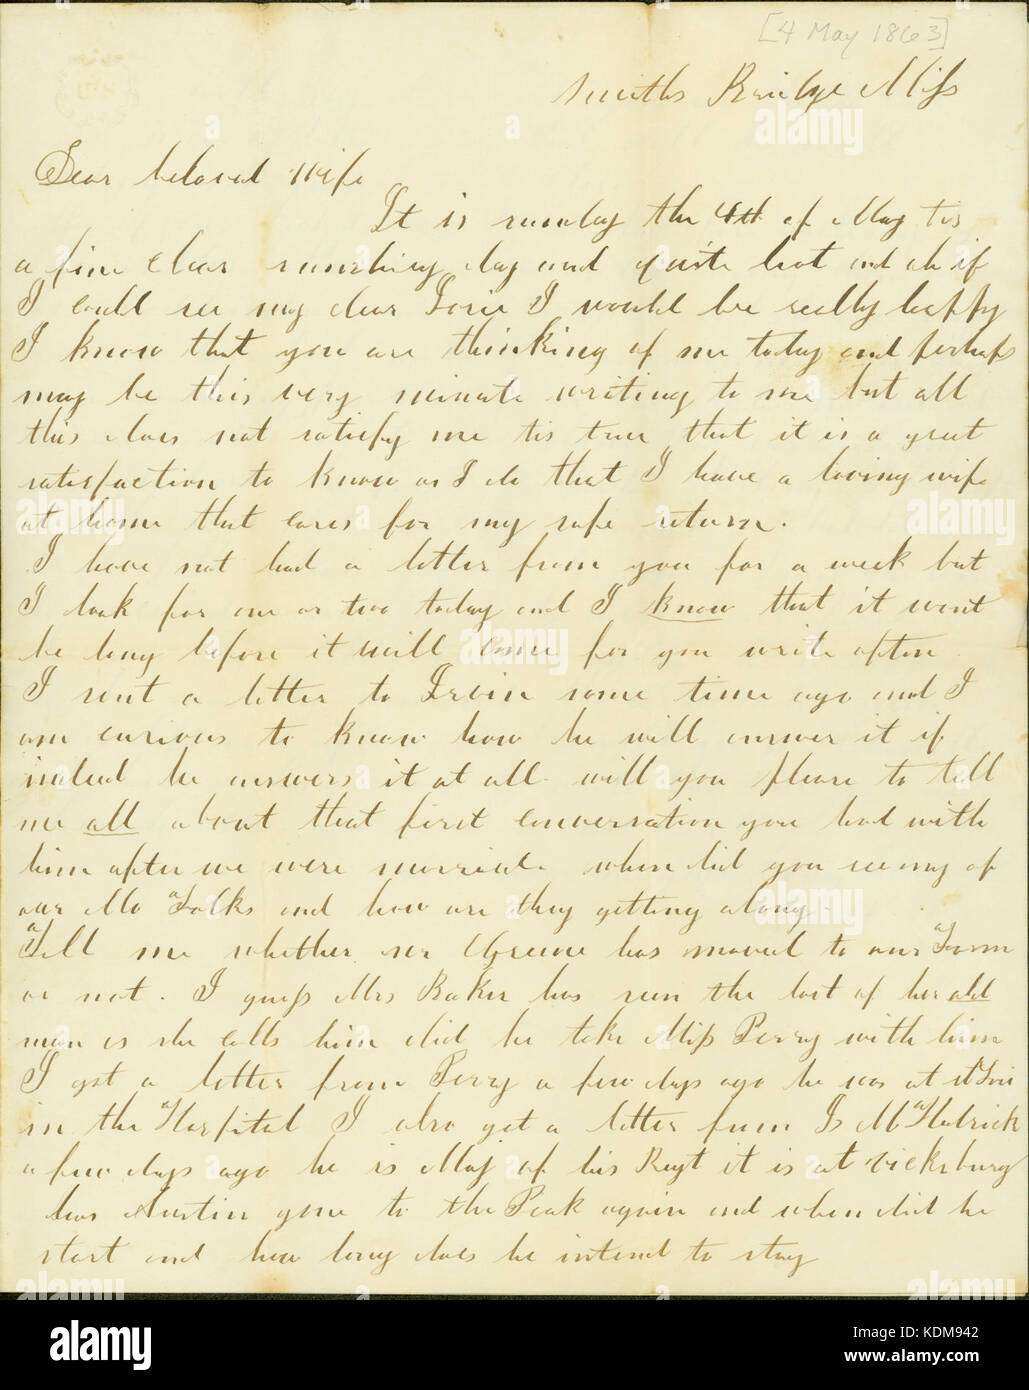 [4 May 1863]
Smiths Bridge Miss
Dear beloved Wife
It is sunday the 4th of May tis
a fine clear sunshiny day and quite hot and oh if
I could see my dear Lorie I would be really happy
I know that you are thinking of me today and perhaps
may be this very minute writing to me but all
this does not satisfy me tis true that it is a great
satisfaction to know as I do that I have a loving wife
at home that cares for my safe return.
I have not had a letter from you for a week but
I look for one or two today and I know that it wont
be long before it will come for you write often
I sent a letter to Irvin some time ago and I
am curious to know how he will answer it if
indeed he answers it at all. will you please to tell
me all about that first conversation you had with
him after we were married. when did you see any of
our Mo Folks and how are they getting along
Tell me whether mr Greene has moved to our Farm
or not. I guess Mrs Baker has seen the last of her old
man as she calls him did he take Miss Perry with him
I got a letter from Perry a few days ago he was at St Louis
in the Hospital I also got a letter from Is
a few days ago he is Maj of his Regt it is at vicksburg
has Austin gone to the Peak again and when did he
start and how long does he intend to stay
alamy
alamy
Image ID: KDM942
www.alamy.com